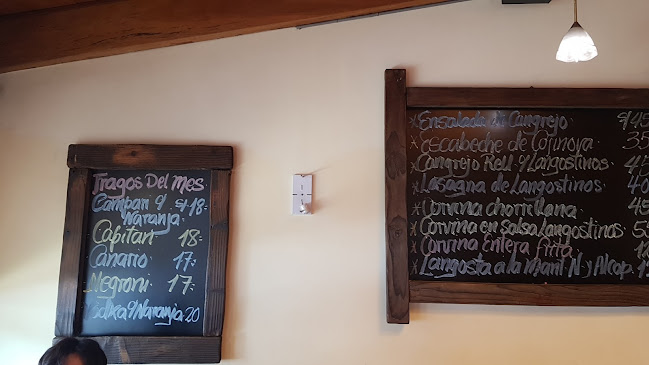 Tragos Del Mes
Campari y S/18.
Naranja
Capitan 18.
Canario 17.
Negroni 17.
y Naranja 20
* Ensalada de Cangrejo S/45
* Escabeche de Cojinova 35
* Cangrejo Rell y Langostinos 45
* Lasagna de Langostinos 40
* Corvina chorrillana 45
* Corvina en Salsa Langostinos 55
* Corvina Entera Frita
* Langosta a la Mant N y Alcap.